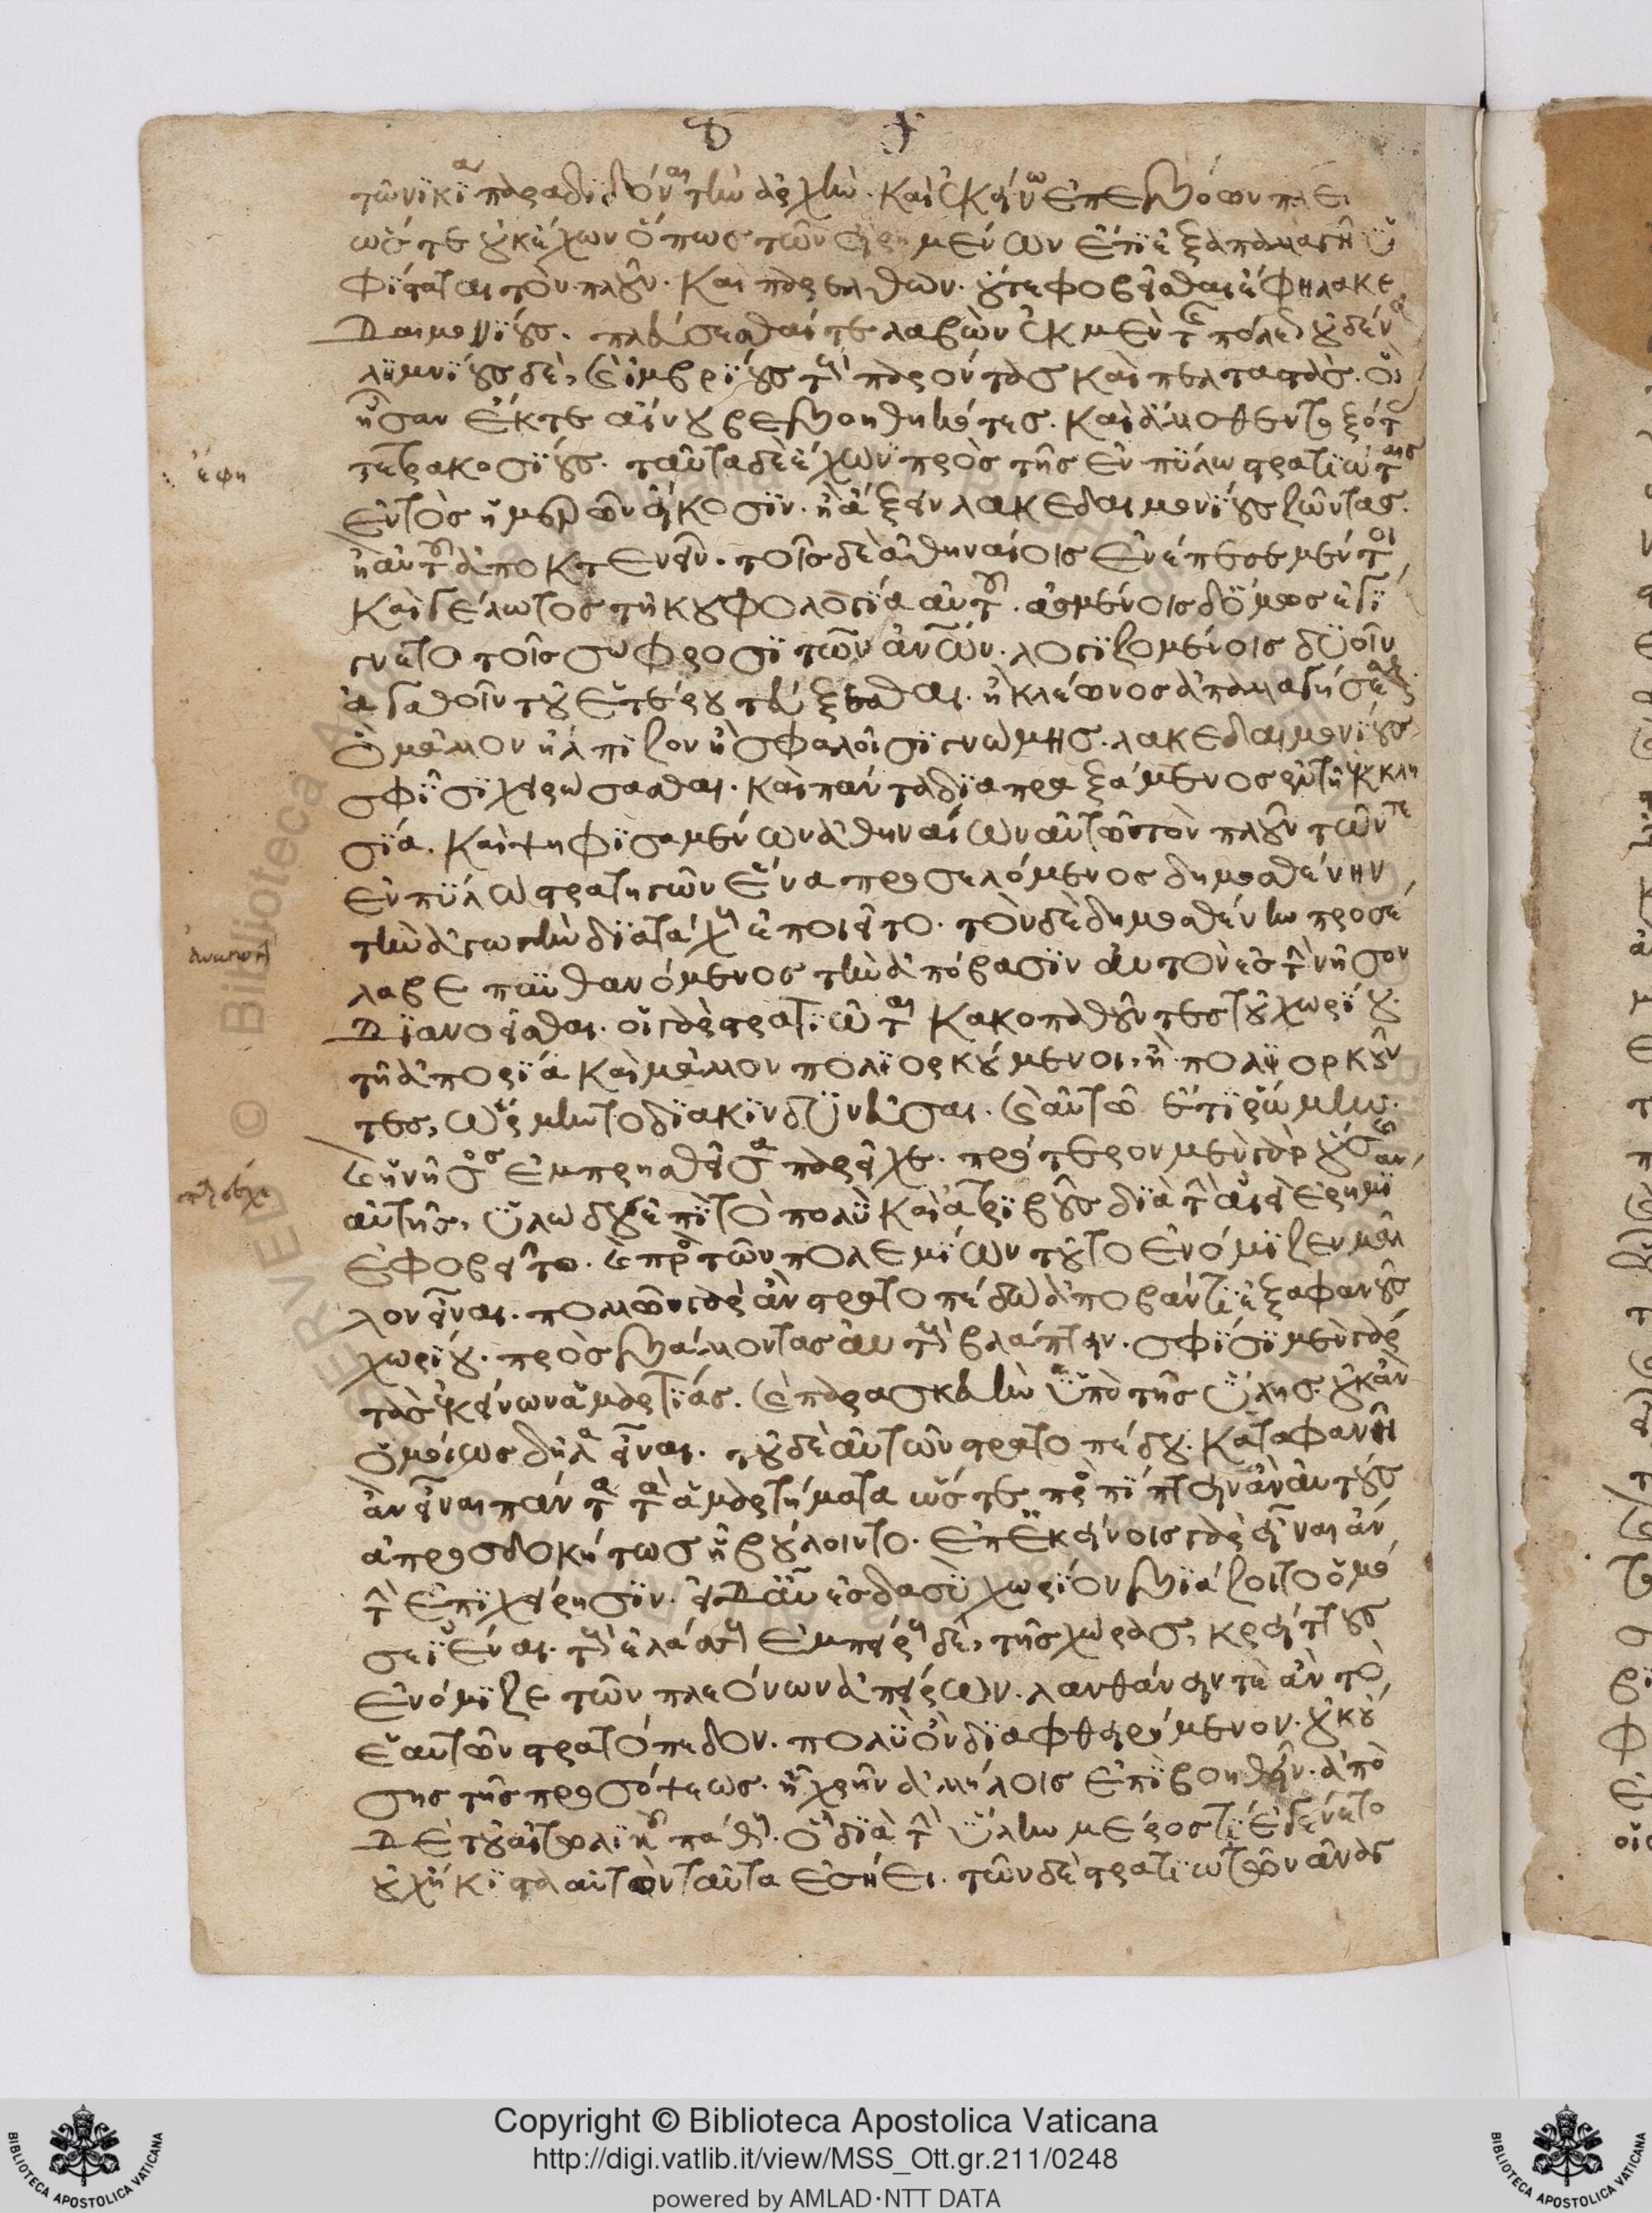 δ
τῶι νικία παραδιδόναι τὴν ἀρχήν· καὶ ἐκείνω ἐπεβόων πλεῖ
ὥστε οὐκ ἔχων ὅπως τῶν εἰρημένων ἔτι ἐξαπαλλαγῆ ὑ
φίσταται τὸν πλοῦν· καὶ παρελθὼν· οὔτε φοβεῖσθαι ἔφη λακε
δαιμονίους· πλεύσεσθαί τε λαβὼν ἐκ μὲν τῆς πόλεως οὐδένα
λημνίους δὲ, καὶ ἰμβρίους τοὺς παρόντας καὶ πελταστὰς· οἳ
ἦσαν ἔκ τε αἴνου βεβοηθηκότες· καὶ ἄλλοθεν τοξότας
τετρακοσίους· ταῦτα δὲ ἔχων πρὸς τῆς ἐν πύλω στρατιώταις
ἐντὸς ἡμερῶν εἴκοσιν· ἢ ἄξειν λακεδαιμονίους ζῶντας·
ἢ αὐτοῦ ἀποκτενεῖν· τοῖς δὲ ἀθηναίοις ἐνέπεσε μέν τι
καὶ γέλωτος τῆ κουφολογία αὐτοῦ· ἀσμένοις δ' ὅμως ἐγί
γνετο τοῖς σώφροσι τῶν ἀνων· λογιζομένοις δυοῖν
ἀγαθοῖν τοῦ ἑτέρου τεύξεσθαι· ἢ κλέωνος ἀπαλλαγήσεσθαι
ὃ μᾶλλον ἤλπιζον ἢ σφαλεῖσι γνώμης· λακεδαιμονίους
σφίσι χειρώσασθαι· καὶ πάντα διαπραξάμενος ἐν τῆ ἐκκλη
σία· καὶ ψηφισαμένων ἀθηναίων αὐτῶ τὸν πλοῦν τῶν τε
ἐν πύλω στρατηγῶν ἕνα προσελόμενος δημοσθένην
τὴν ἀγωγὴν διατάχους ἐποιεῖτο· τὸν δὲ δημοσθένην προσέ
λαβε πυνθανόμενος τὴν ἀπόβασιν αὐτὸν ἐς τὴν νῆσον
διανοεῖσθαι· οἱ γὰρ στρατιῶται κακοπαθοῦντες τοῦ χωρίου·
τῆ ἀπορία καὶ μᾶλλον πολιορκούμενοι, ἢ πολιορκοῦν
τες, ὥρμηντο διακινδυνεῦσαι· καὶ αὐτῶ ἔτι ῥώμην·
καὶ ἡ νῆσος ἐμπρησθεῖσα παρεῖχε· πρότερον μὲν γὰρ οὔσης
αὐτῆς, ὑλώδους ἐπὶ τὸ πολὺ καὶ ἀτριβοῦς διὰ τὴν ἀεὶ ἐρημί
ἐφοβεῖτο· καὶ πρὸς τῶν πολεμίων τοῦτο ἐνόμιζεν μᾶλ
λον εἶναι· πολλῶ γὰρ ἂν στρατοπέδω ἀποβάντι ἐξ ἀφανοῦς
χωρίου· προσβάλλοντας αὐτοὺς βλάπτειν· σφίσι μὲν γὰρ
τὰς ἐκείνων ἁμαρτίας· καὶ παρασκευὴν ὑπὸ τῆς ὕλης· οὐκ ἂν
ὁμοίως δῆλα εἶναι· τοῦ δὲ αὐτῶν στρατοπέδου· καταφανῆ
ἂν εἶναι πάντα τὰ ἁμαρτήματα ὥστε προσπίπτειν ἂν αὐτοὺς
ἀπροσδοκήτως ἧ βούλοιντο· ἐπ' ἐκείνοις γὰρ εἶναι ἂν
τὴν ἐπιχείρησιν· εἰ δ' αὖ ἐς δασὺ χωρίον βιάζοιτο ὁμό
σε ἰέναι· τοὺς ἐλάσσους ἐμπείρους δὲ, τῆς χώρας, κρείττους
ἐνόμιζε τῶν πλεόνων ἀπείρων· λανθάνειν τε ἂν τὸ
ἑαυτῶν στρατόπεδον· πολὺ ὂν διαφθειρόμενον· οὐκ οὔ
σης τῆς προσόψεως· ἧ χρῆν ἀλλήλοις ἐπιβοηθεῖν· ἀπὸ
δὲ τοῦ αἰτωλικοῦ πάθους· ὃ διὰ τὴν ὕλην μέρος τι ἐγένετο
οὐχ ἥκιστα αὐτὸν ταῦτα ἐσήει· τῶν δὲ στρατιωτῶν ἀναγ
ἔφη